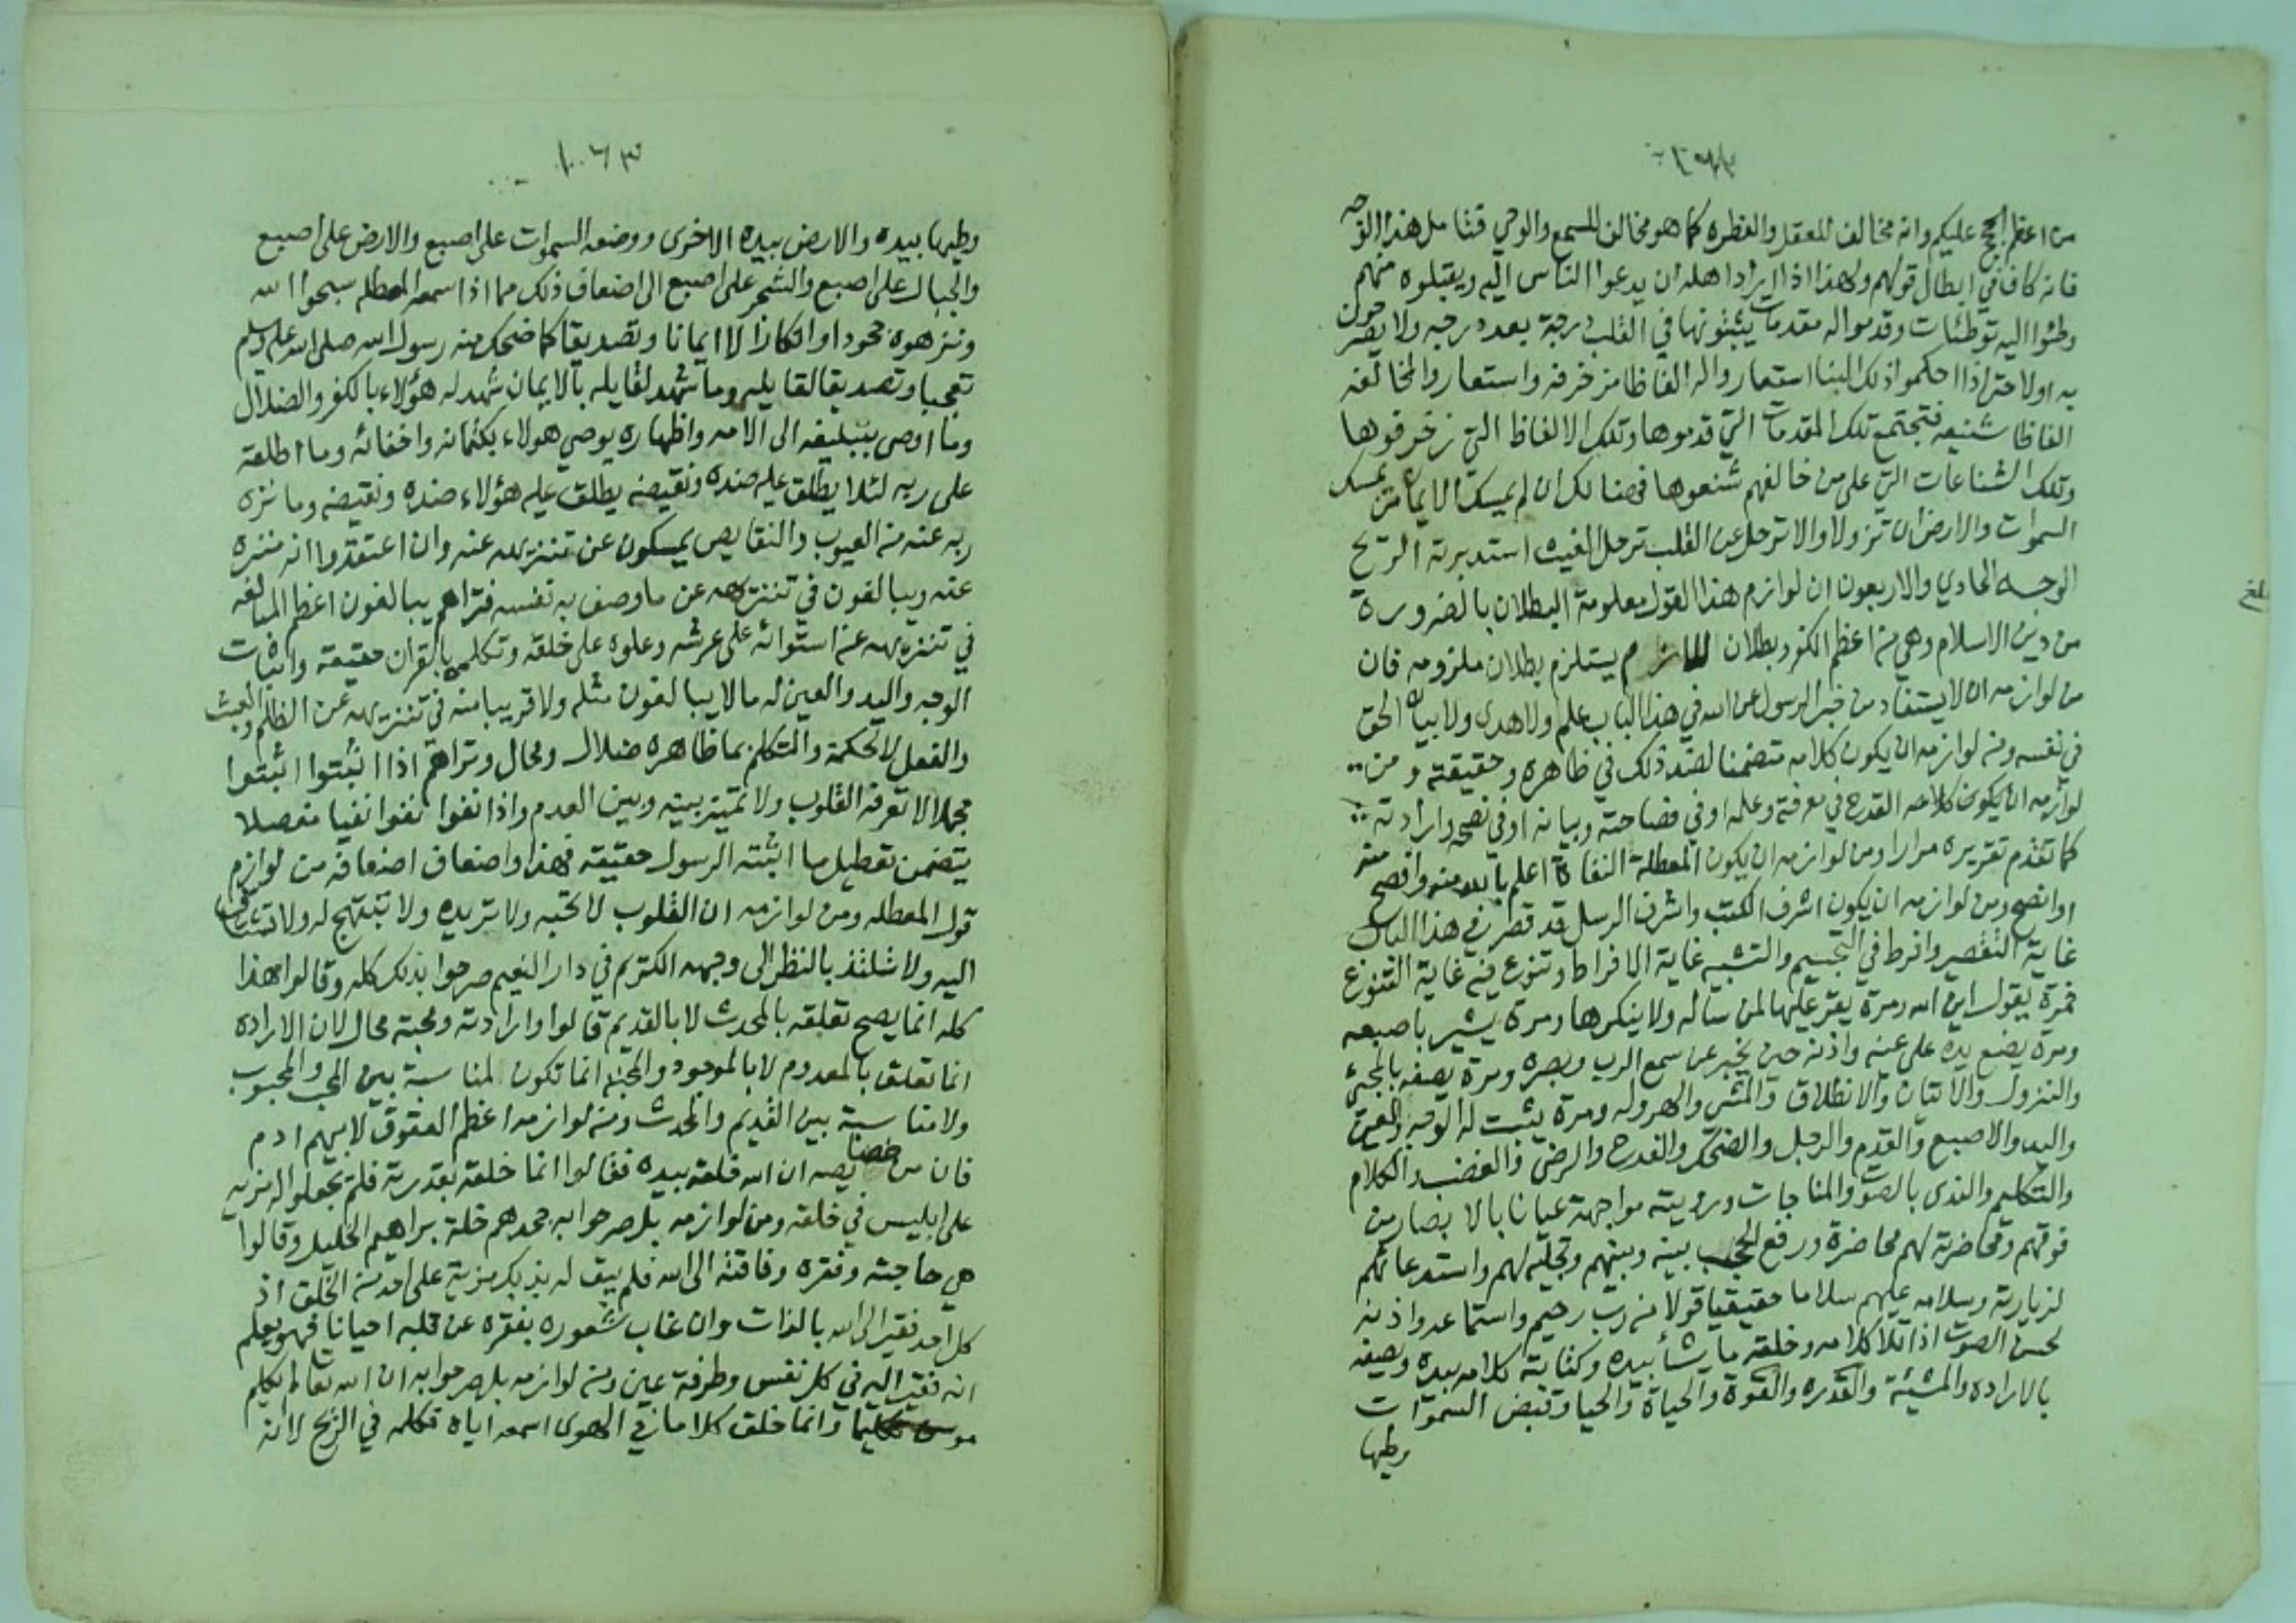 من اعظم الحجج عليكم وانه مخالف للعقل والفطره كما هو مخالف للسمع والوحي فتامل هذا الوجه
فانه كاف في ابطال قولهم ولهذا اذا اراد اهله ان يدعوا الناس اليه ويقبلوه منهم
وطئوا اليه توطئات وقدموا له مقدمات يثبتونها في القلب درجة بعد درجه ولا يصرحون
به اولا حتى اذا احكموا ذلك البنا استعاروا له الفاظا مزخرفه واستعاروا لمخالفه
الفاظا شنيعه فتجتمع تلك المقدمات التي قدموها وتلك الالفاظ التي زخرفوها
وتلك الشناعات التي على من خالفهم شنعوها فهنالك ان لم يمسك الايمان من يمسك
السموات والارض ان تزولا والا ترحل عن القلب ترحل الغيث استدبرته الريح
الوجه الحادي والاربعون ان لوازم هذا القول معلومة البطلان بالضرورة
من دين الاسلام وهي من اعظم الكفر وبطلان اللازم يستلزم بطلان ملزومه فان
من لوازمه ان لا يستفاد من خبر الرسول عن الله في هذا الباب علم ولا هدى ولا بيان الحق
في نفسه ومن لوازمه ان يكون كلامه متضمنا لضد ذلك في ظاهره وحقيقته ومن
لوازمه ان يكون كلامه القدح في معرفته وعلمه او في فصاحته وبيانه او في نصحه وارادته
كما تقدم تقريره مرارا ومن لوازمه ان يكون المعطلة النفاة اعلم بالله منه وافصح منه
او انصح ومن لوازمه ان يكون اشرف الكتب واشرف الرسل قد قصر في هذا الباب
غاية التقصير وافرط في التجسيم والتشبيه غاية الافراط وتنوع فيه غاية التنوع
فمرة يقول اين الله ومرة يقر عليها لمن ساله ولا ينكرها ومرة يشير باصبعه
ومرة يضع يده على عينه واذنه حين يخبر عن سمع الرب وبصره ومرة يصفه بالمجيئ
والنزول والاتيان والانطلاق والمشي والهروله ومرة يثبت له الوجه والعين
واليد والاصبع والقدم والرجل والضحك والفرح والرضى والغضب والكلام
والتكليم والندى بالصوت والمناجات ورويته مواجهة عيانا بالابصار من
فوقهم ومحاضرته لهم محاضرة ورفع الحجب بينه وبينهم وتجليه لهم واستدعائهم
لزيارته وسلامه عليهم سلاما حقيقيا قولا من رب رحيم واستماعه واذنه
لحسن الصوت اذا تلا كلامه وخلقه ما يشأ بيده وكتابة كلامه بيده ويصفه
بالاراده والمشيئة والقدره والقوة والحياة والحيا وقبض السموات
وطيها
١٠٦٣
وطيها بيده والارض بيده الاخرى ووضعه السموات على اصبع والارض على اصبع
والجبال على اصبع والشجر على اصبع الى اضعاف ذلك مما اذا سمعه المعطله سبحوا الله
ونزهوه جحودا وانكارا لا ايمانا وتصديقا كما ضحك منه رسول الله صلى الله عليه وسلم
تعجبا وتصديقا لقايله وما شهد لقايله بالايمان شهد له هؤلاء بالكفر والضلال
وما اوصى بتبليغه الى الامه واظهاره يوصي هولاء بكتمانه واخفائه وما اطلقه
على ربه لئلا يطلق عليه ضده ونقيضه يطلق عليه هؤلاء ضده ونقيضه وما نزه
ربه عنه من العيوب والنقايص يمسكون عن تنزيهه عنه وان اعتقدوا انه منزه
عنه ويبالغون في تنزيهه عن ما وصف به نفسه فتراهم يبالغون اعظم المبالغه
في تنزيهه عن استوائه على عرشه وعلوه على خلقه وتكلمه بالقران حقيقة واثبات
الوجه واليد والعين له ما لا يبالغون مثله ولا قريبا منه في تنزيهه عن الظلم والعبث
والفعل لا لحكمة والتكلم بما ظاهره ضلال ومحال وتراهم اذا اثبتوا اثبتوا
مجملا لا تعرفه القلوب ولا تميز بينه وبين العدم واذا نفوا نفوا نفيا مفصلا
يتضمن تعطيل ما اثبته الرسول حقيقة فهذا واضعاف اضعافه من لوازم
قول المعطله ومن لوازمه ان القلوب لا تحبه ولا تريده ولا تبتهج له ولا تشتاق
اليه ولا تلتذ بالنظر الى وجهه الكريم في دار النعيم صرحوا بذلك كله وقالوا هذا
كله انما يصح تعلقه بالمحدث لا بالقديم قالوا وارادته ومحبته محال لان الاراده
انما تعلق بالمعدوم لا بالموجود والمحبة انما تكون لمناسبة بين المحب والمحبوب
ولا مناسبة بين القديم والمحدث ومن لوازمه اعظم العقوق لابيهم ادم
فان من خصايصه ان الله خلقه بيده فقالوا انما خلقه بقدرته فلم يجعلوا له مزيه
على ابليس في خلقه ومن لوازمه بل صرحوا به جحدهم خلة براهيم الخليل وقالوا
هي حاجته وفقره وفاقته الى الله فلم يبق له بذلك مزية على احد من الخلق اذ
كل احد فقير الى الله بالذات وان غاب شعوره بفقره عن قلبه احيانا فهو يعلم
انه فقير اليه في كل نفس وطرفة عين ومن لوازمه بل صرحوا به ان الله تعالى لم يكلم
موسى تكليما وانما خلق كلاما في الهوى اسمعه اياه فكلمه في الريح لا انه
بلغ